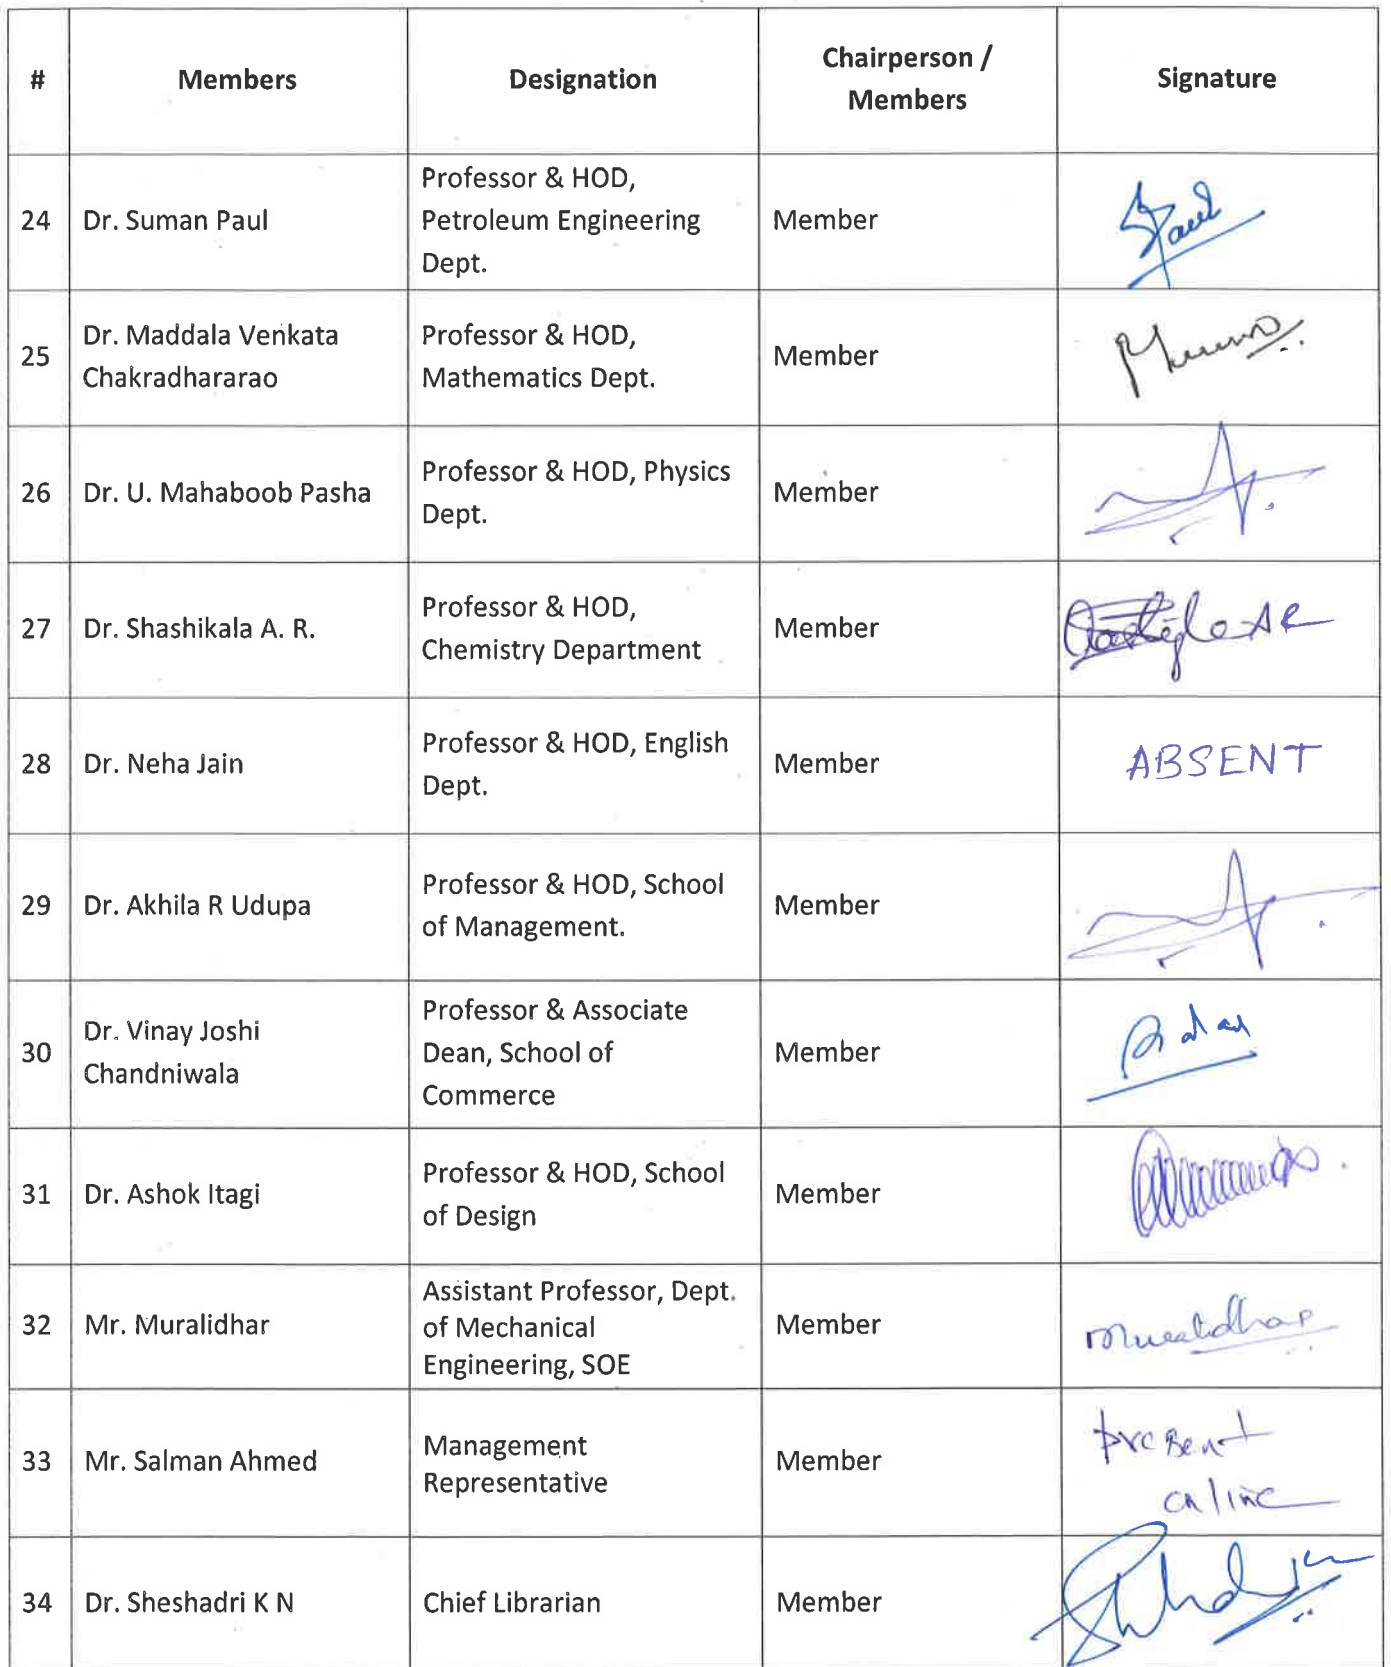 # Members Designation Chairperson / Members Signature
24 Dr. Suman Paul Professor & HOD, Petroleum Engineering Dept. Member Paul
25 Dr. Maddala Venkata Chakradhararao Professor & HOD, Mathematics Dept. Member
26 Dr. U. Mahaboob Pasha Professor & HOD, Physics Dept. Member
27 Dr. Shashikala A. R. Professor & HOD, Chemistry Department Member
28 Dr. Neha Jain Professor & HOD, English Dept. Member ABSENT
29 Dr. Akhila R Udupa Professor & HOD, School of Management. Member
30 Dr. Vinay Joshi Chandniwala Professor & Associate Dean, School of Commerce Member
31 Dr. Ashok Itagi Professor & HOD, School of Design Member
32 Mr. Muralidhar Assistant Professor, Dept. of Mechanical Engineering, SOE Member Muralidhar
33 Mr. Salman Ahmed Management Representative Member present online
34 Dr. Sheshadri K N Chief Librarian Member